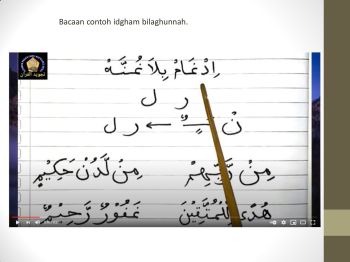 Bacaan contoh idgham bilaghunnah.
تجويد القرآن
اِدْغَامْ بِلَاغُنَّهْ
ر ل
نْ ـًـٍـٌ ← ر ل
مِنْ رَّبِّهِمْ مِنْ لَّدُنْ حَكِيْمٍ
هُدًى لِّلْمُتَّقِيْنَ غَفُوْرٌ رَّحِيْمٌ